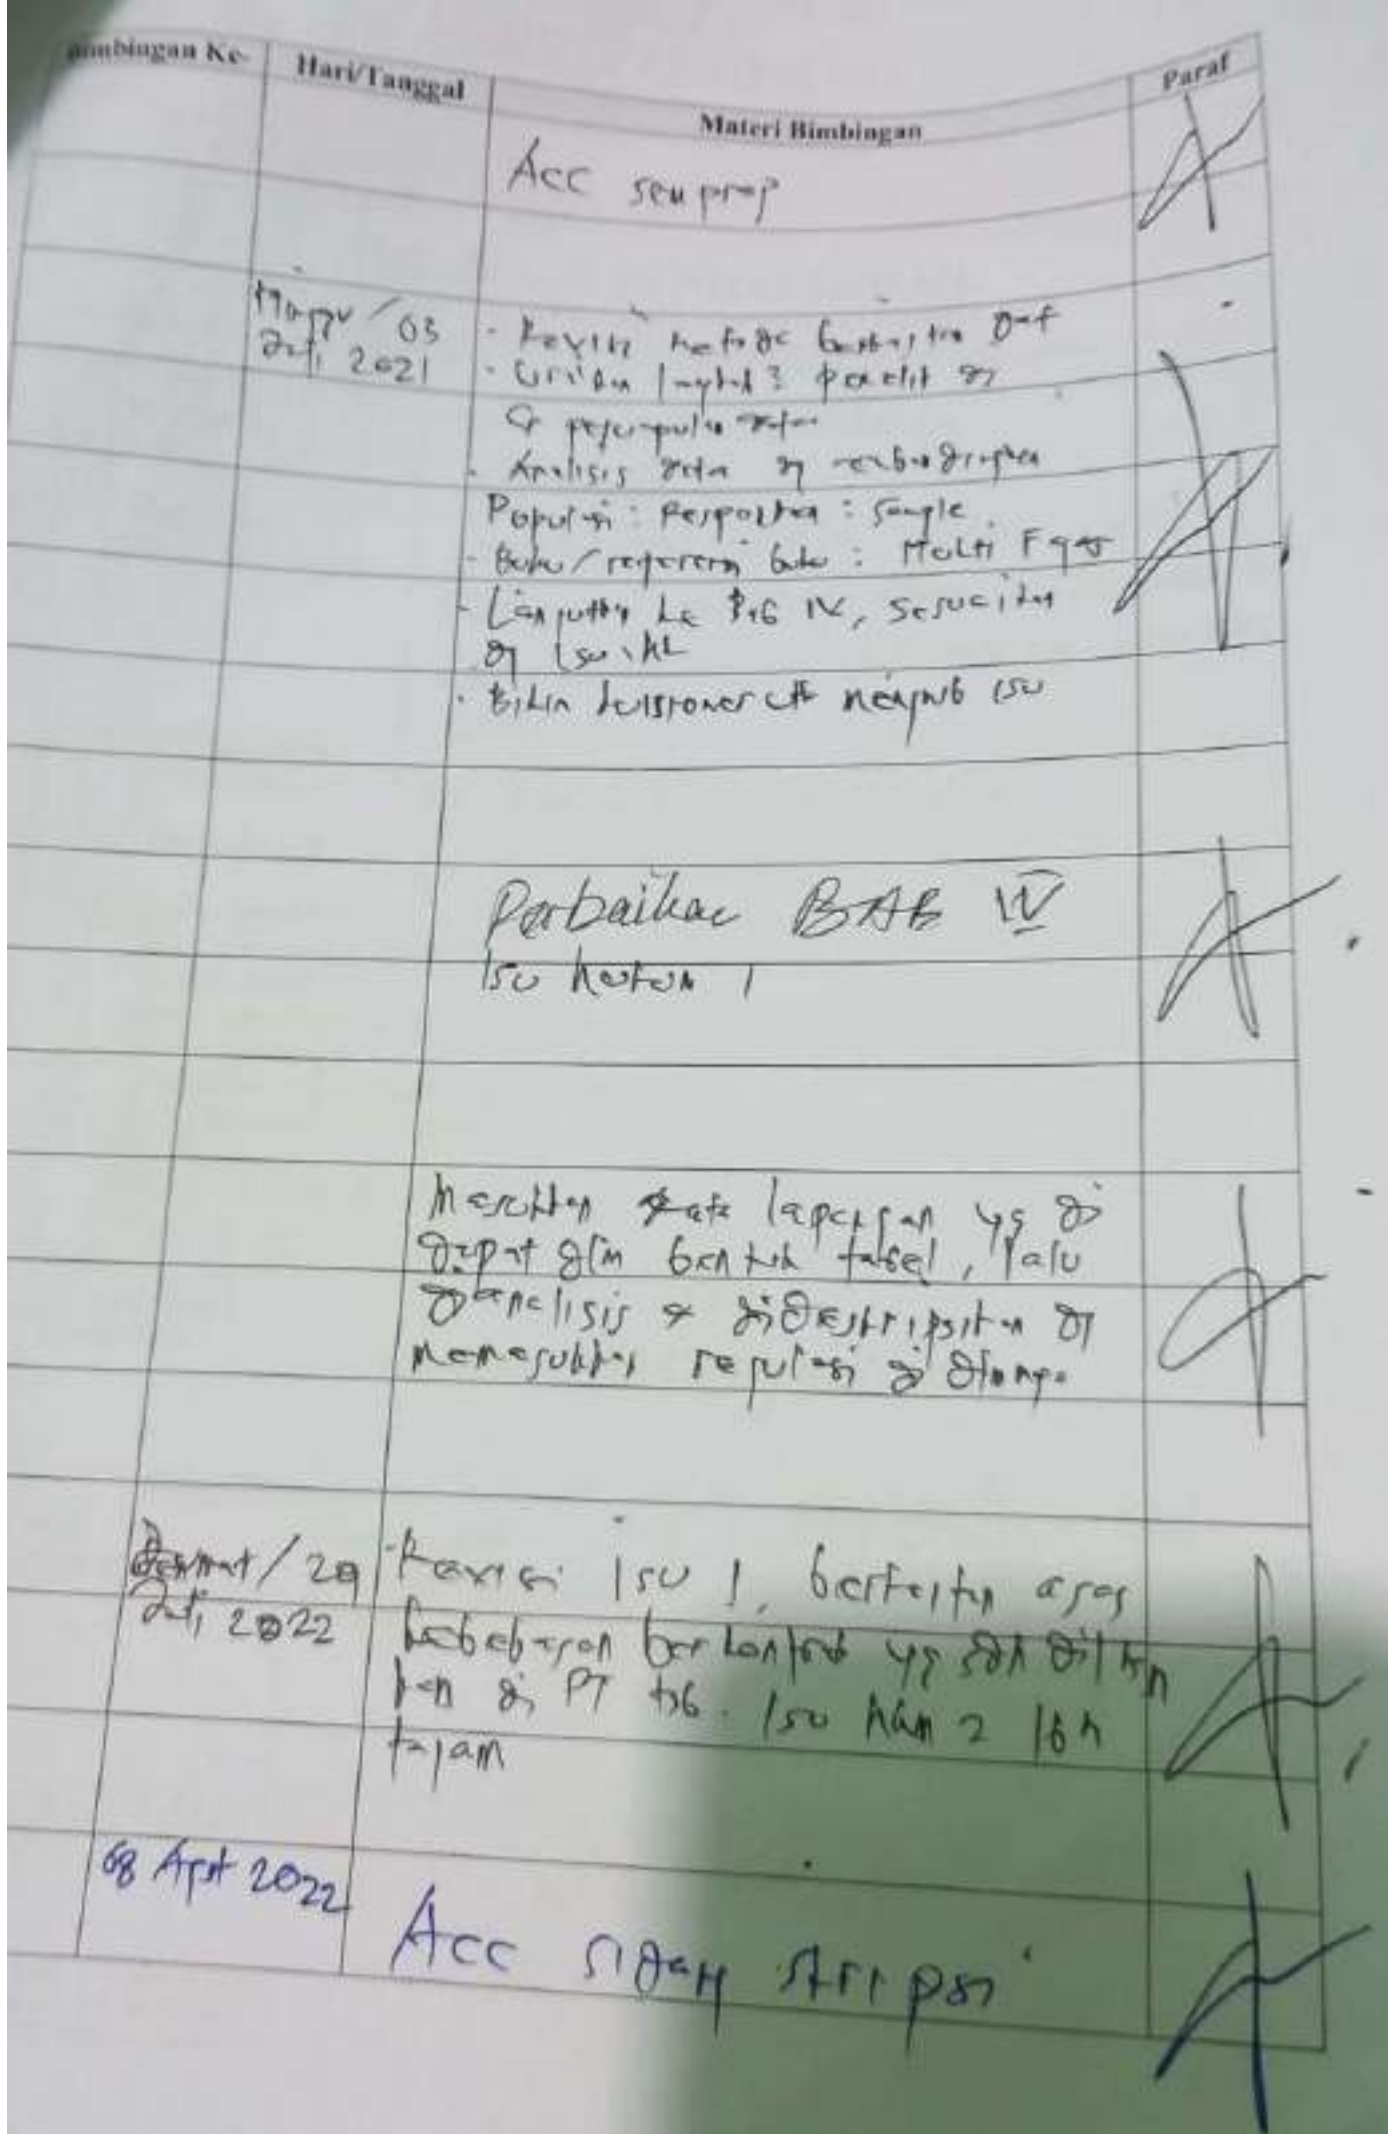 Bimbingan Ke-
Hari/Tanggal
Materi Bimbingan
Paraf
Acc semprop
03
Juli 2021
- Revisi metode
Analisis data
Populasi : Responden : Sample
- Buku / referensi buku : Multi
- Lanjutkan ke Bab IV, sesuaikan
dg isu
- Bikin kuisioner utk menjwb isu
Perbaikan BAB IV
Isu hukum 1
Masukkan data lapangan yg di
dapat dlm bentuk tabel, lalu
dianalisis & dideskripsikan dg
memasukkan regulasi di dlmnya
/ 29
Juli 2022
- Revisi isu 1, berkaitan asas
kebebasan berkontrak yg sdh
kan di PT tsb. Isu hkm 2 lbh
tajam
08 Agst 2022
Acc sidang skripsi